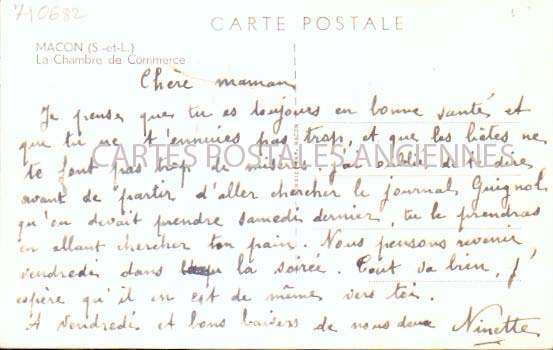 710682
CARTE POSTALE
MACON (S.-et-L.)
La Chambre de Commerce
Chère maman
Je pense que tu es toujours en bonne santé et
que tu ne t'ennuies pas trop, et que les bêtes ne
te font pas trop de misères. J'ai oublié de te dire
CARTES POSTALES ANCIENNES
avant de partir d'aller chercher le journal Guignol,
qu'on devait prendre samedi dernier, tu le prendras
en allant chercher ton pain. Nous pensons revenir
vendredi dans la soirée. Tout va bien, j'
espère qu'il en est de même vers toi.
A vendredi et bons baisers de nous deux Ninette